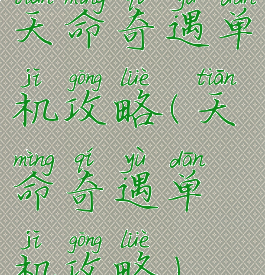 tiān mìng qí yù dān
天命奇遇单
jī gōng lüè tiān
机攻略(天
mìng qí yù dān
命奇遇单
jī gōng lüè
机攻略)